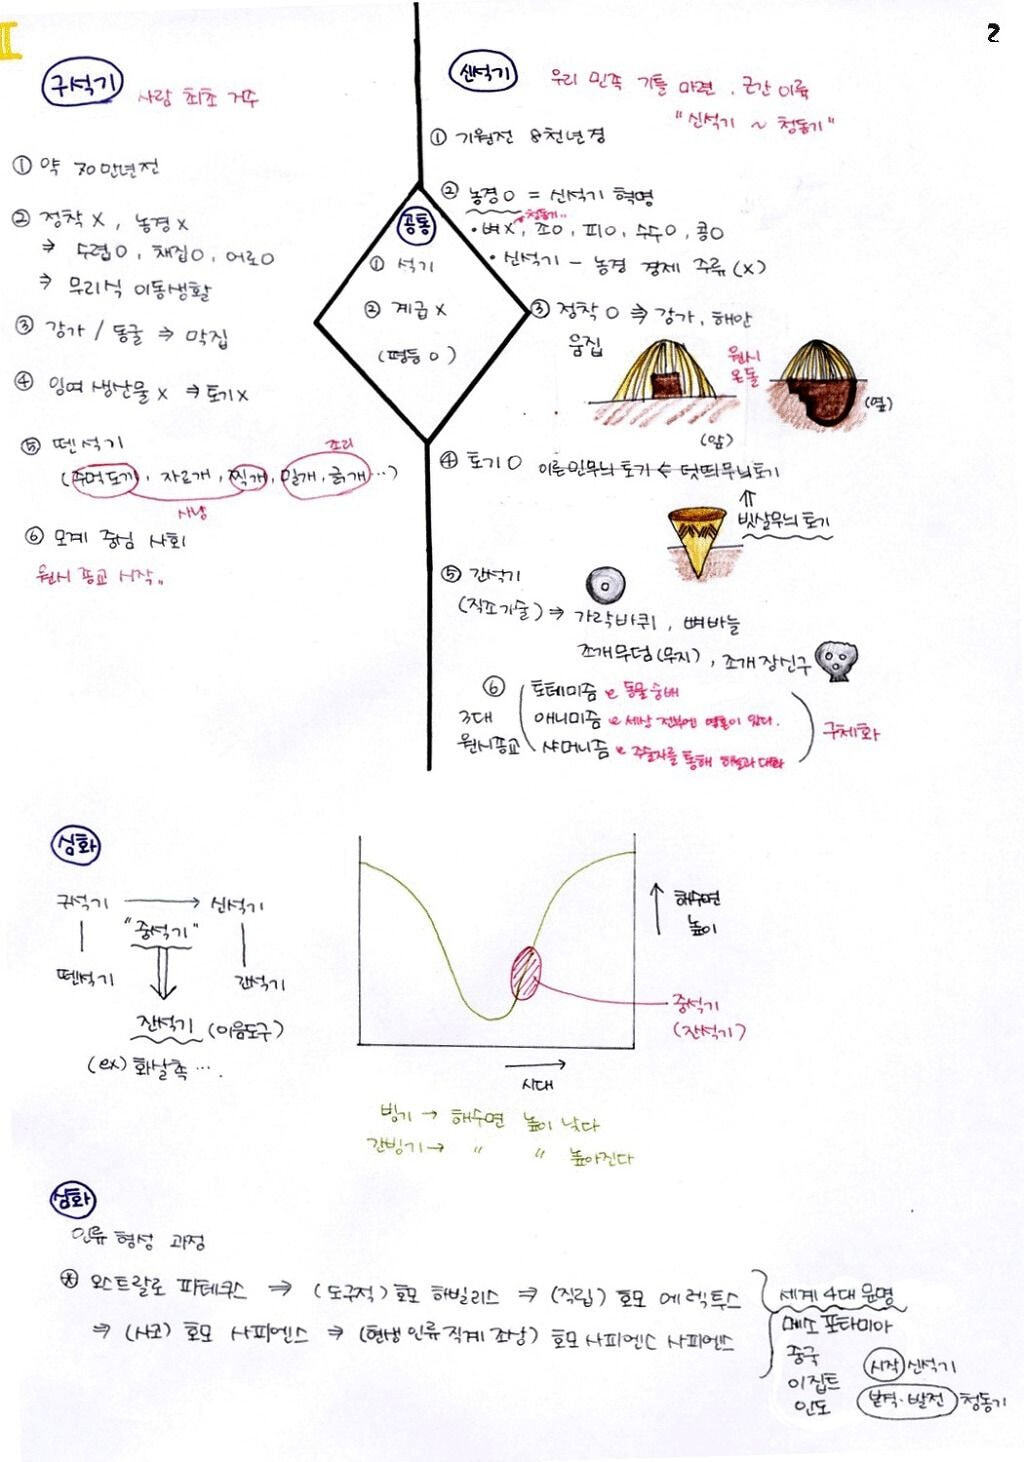 I
2
구석기 사람 최초 거주
① 약 70만년전
② 정착 X, 농경 X
⇒ 수렵O, 채집O, 어로O
⇒ 무리식 이동생활
③ 강가 / 동굴 ⇒ 막집
④ 잉여 생산물 X ⇒ 토기X
⑤ 뗀석기
조리
(주먹도끼, 자르개, 찍개, 밀개, 긁개 …)
사냥
⑥ 모계 중심 사회
원시 종교 시작..
공통
① 석기
② 계급 X
(평등 O)
신석기 우리 민족 기틀 마련, 근간 이룸
"신석기 ~ 청동기"
① 기원전 8천년경
② 농경 O = 신석기 혁명
청동기..
• 벼X, 조O, 피O, 수수O, 콩O
• 신석기 - 농경 경제 주류 (X)
③ 정착 O ⇒ 강가, 해안
움집
원시
온돌
(앞)
(옆)
④ 토기 O 이른민무늬 토기 ← 덧띠무늬토기
⇑
빗살무늬 토기
⑤ 간석기
(직조기술) ⇒ 가락바퀴, 뼈바늘
조개무덤(무지), 조개 장신구
⑥
3대
원시종교
토테미즘 동물 숭배
애니미즘 세상 전부에 영혼이 있다.
샤머니즘 주술자를 통해 하늘과 대화
구체화
심화
구석기 → 신석기
"중석기"
뗀석기
간석기
잔석기 (이음도구)
(ex) 화살촉 ….
↑ 해수면
높이
중석기
(잔석기)
→
시대
빙기 → 해수면 높이 낮다
간빙기→ 〃 〃 높아진다
심화
인류 형성 과정
⊛ 오스트랄로 피테쿠스 ⇒ (도구적) 호모 하빌리스 ⇒ (직립) 호모 에렉투스
⇒ (사고) 호모 사피엔스 ⇒ (현생 인류 직계 조상) 호모 사피엔스 사피엔스
세계 4대 문명
메소포타미아
중국
이집트
인도
시작 신석기
본격·발전 청동기